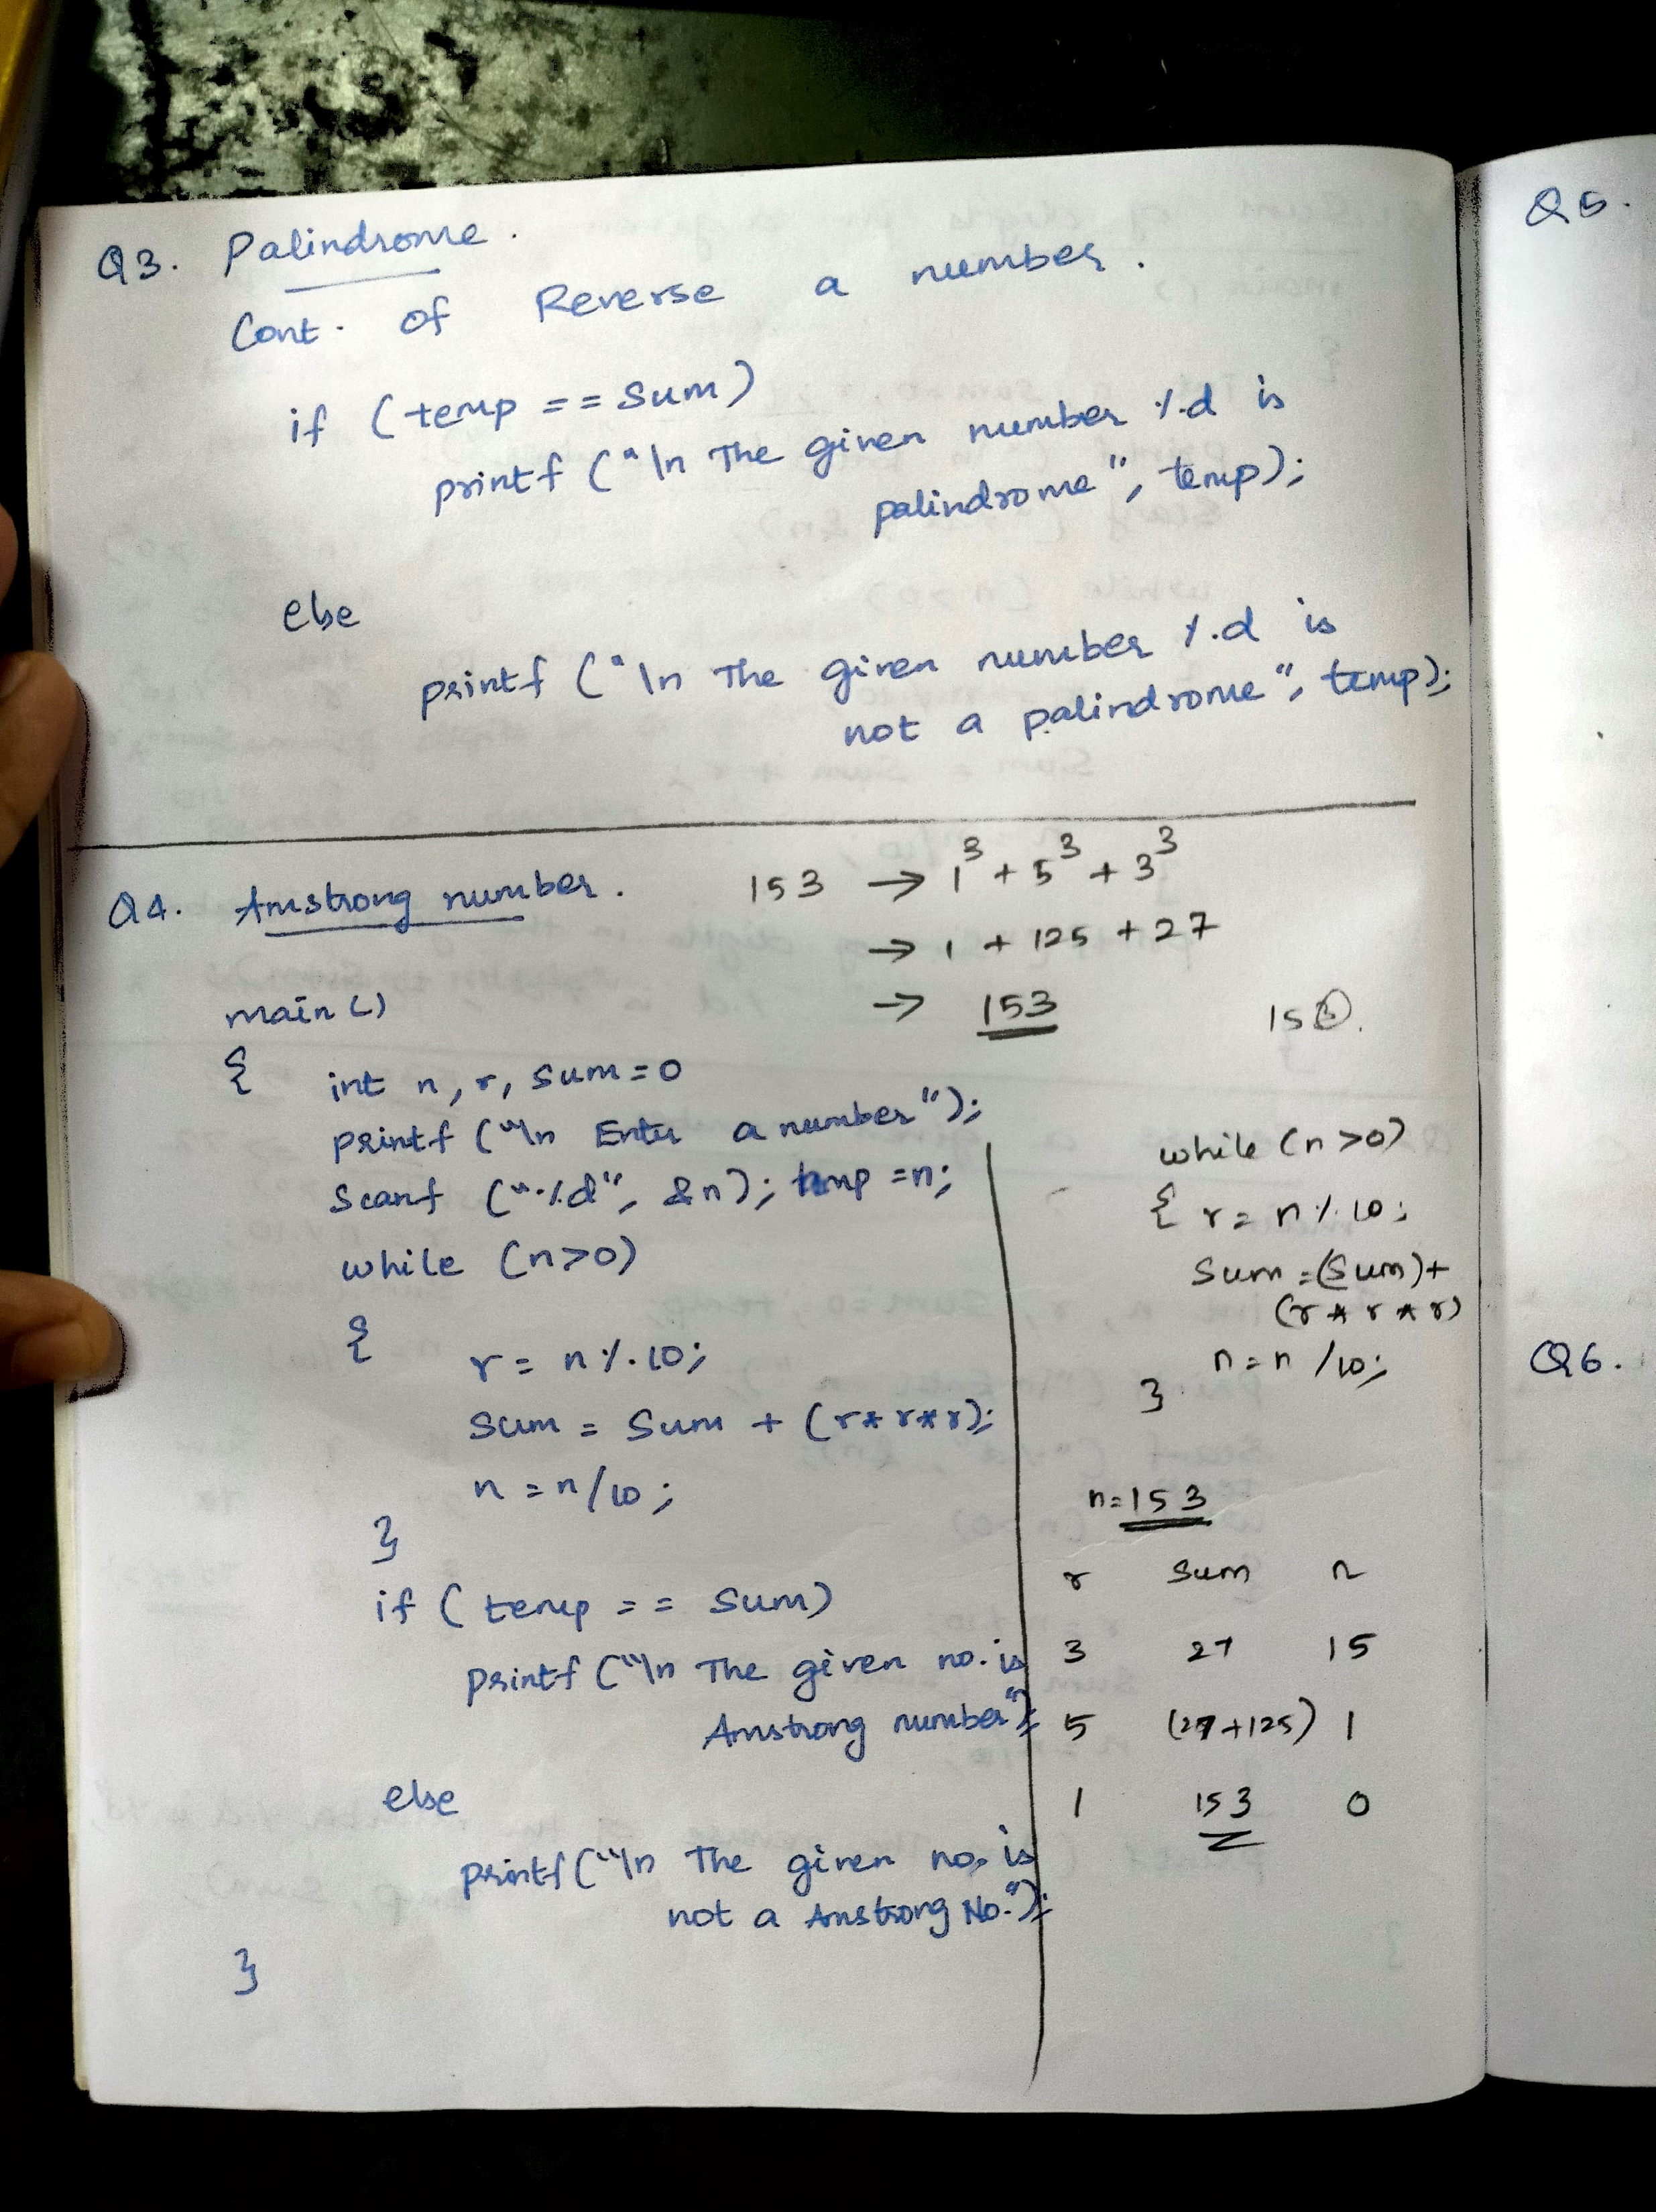 Q3. Palindrome.
Cont. of Reverse a number.
if (temp == sum)
printf ("\n The given number %d is
palindrome", temp);
else
printf ("\n The given number %d is
not a palindrome", temp);
Q4. Amstrong number.
153 → 1³ + 5³ + 3³
→ 1 + 125 + 27
→ 153
153.
main ()
{ int n, r, sum=0
printf ("\n Enter a number");
Scanf ("%d", &n); temp =n;
while (n>0)
{
r = n % 10;
sum = sum + (r*r*r);
n = n/10;
}
if (temp == sum)
printf ("\n The given no. is
Amstrong number");
else
printf ("\n The given no. is
not a Amstrong No.");
}
while (n >0)
{ r = n % 10;
Sum =(Sum)+
(r * r * r)
n = n /10;
}
n=153
r sum n
3 27 15
5 (27+125) 1
1 153 0
Q5.
Q6.